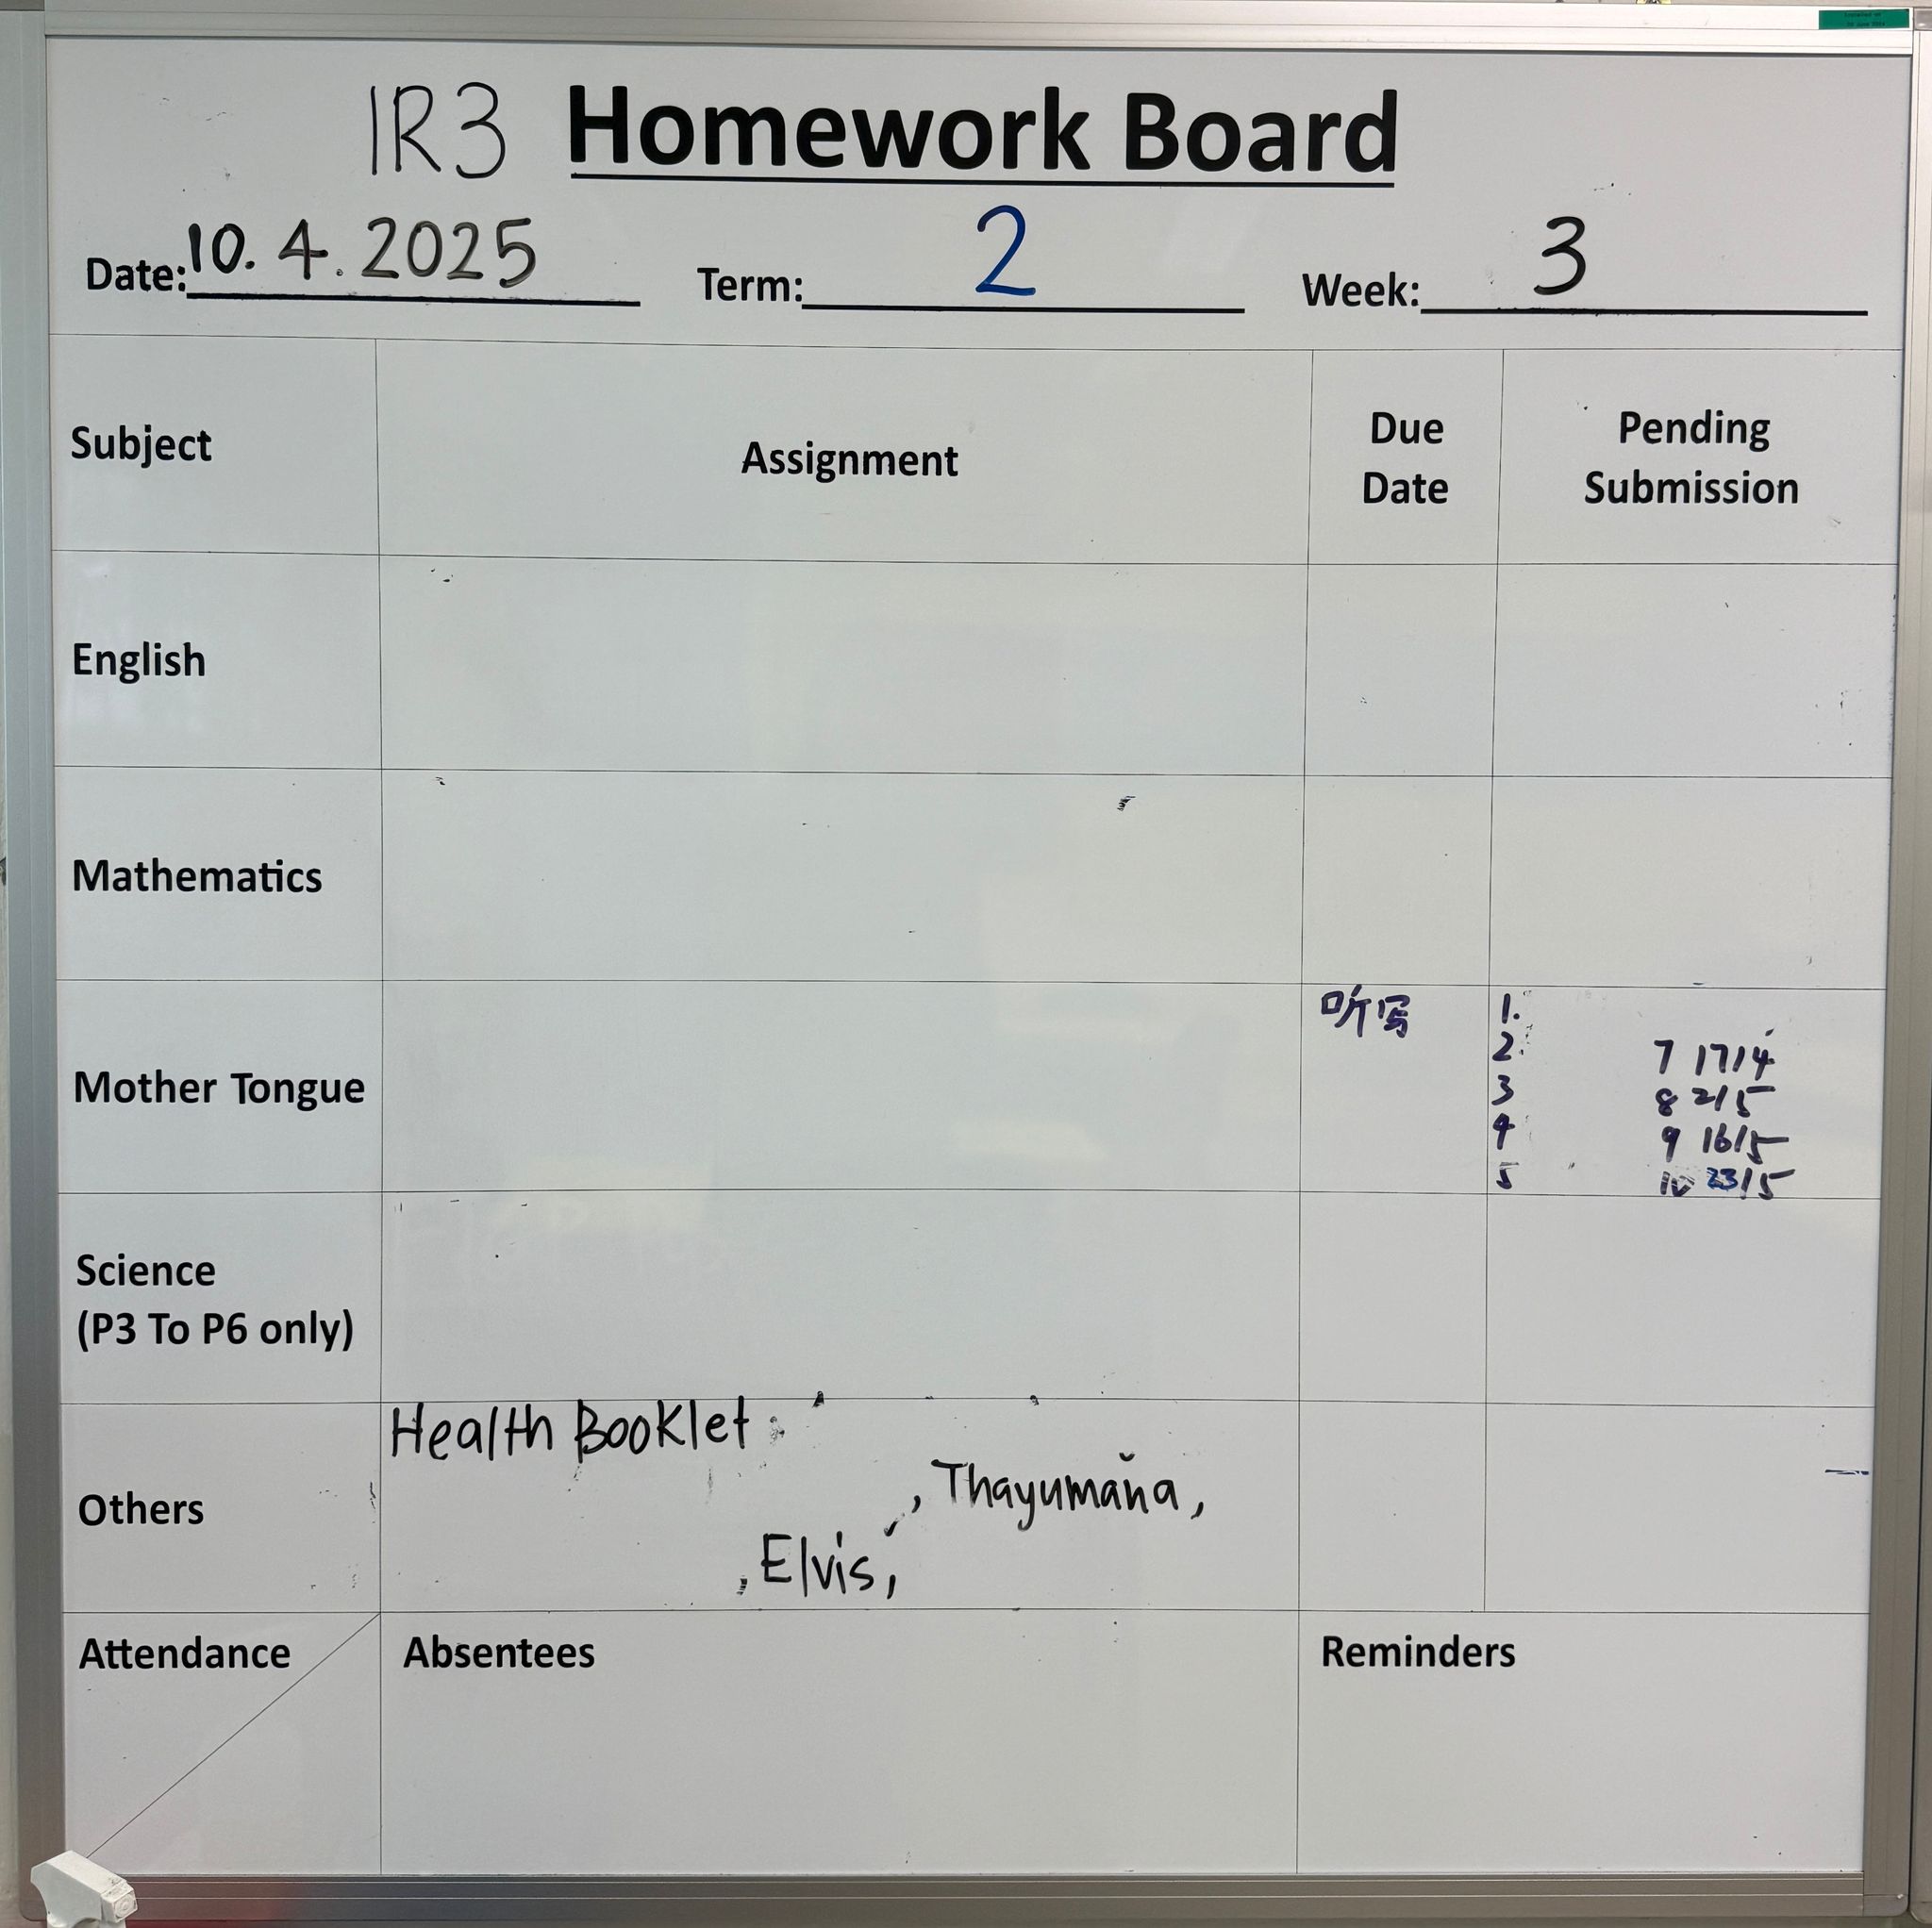 1R3 Homework Board
Date: 10.4.2025 Term: 2 Week: 3
Subject Assignment Due Date Pending Submission
English
Mathematics
Mother Tongue 听写
1.
2. 7 17/4
3 8 2/5
4 9 16/5
5 10 23/5
Science
(P3 To P6 only)
Others
Health Booklet:
, Thayumana,
, Elvis,
Attendance Absentees Reminders